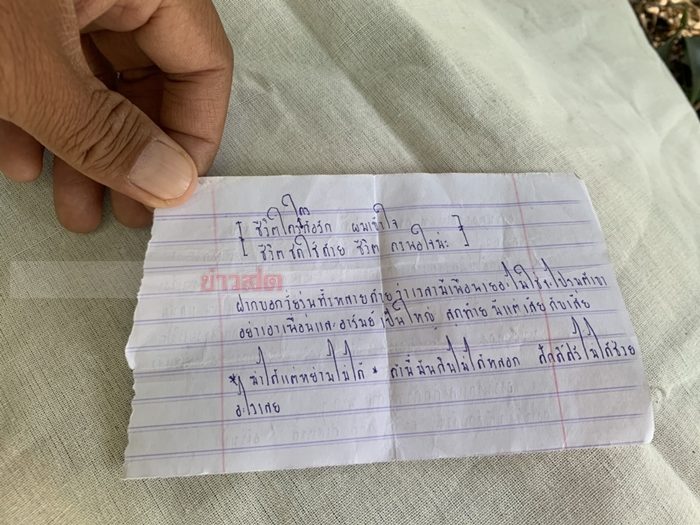 ใคร
[ ชีวิตใครก็รัก ผมเข้าใจ ]
[ ชีวิตชดใช้ด้วย ชีวิต ]
ข่าวสด
ฝากบอกวัยรุ่นทั้งหลายด้วย ว่าเวลามีเพื่อน
อย่าเอาเพื่อนและอารมย์ เป็นใหญ่ สุดท้าย มีแต่เสีย กับเสีย
* ฆ่าได้แต่หยามไม่ได้ * คำนี้มันกินไม่ได้หลอก ศักดิ์ศรีไม่ได้ช่วย
อะไรเลย